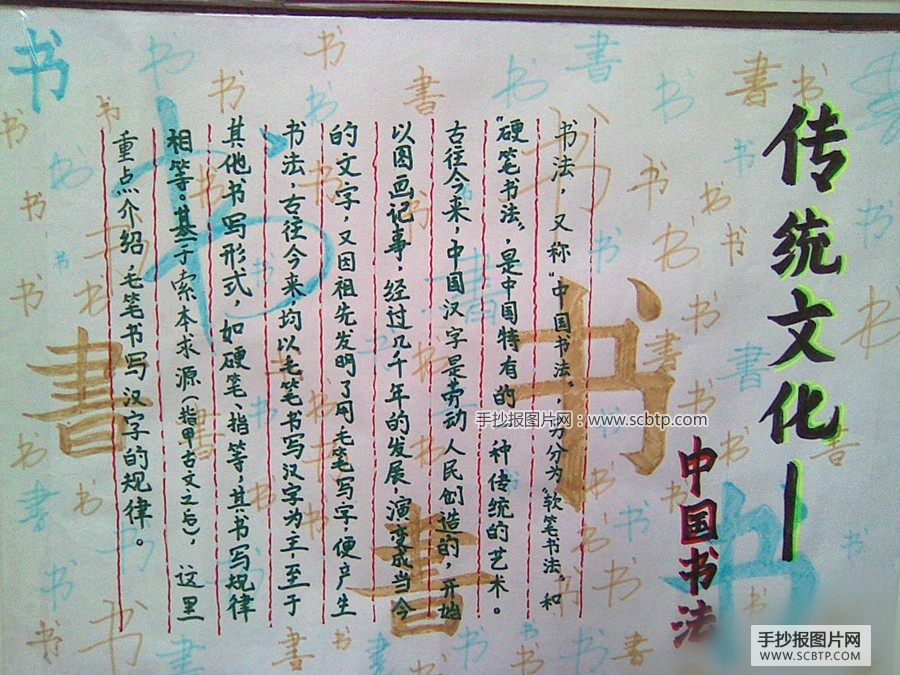 传统文化—
中国书法
书法，又称“中国书法”，分为“软笔书法”和
“硬笔书法”，是中国特有的一种传统的艺术。
古往今来，中国汉字是劳动人民创造的，开始
以图画记事，经过几千年的发展，演变成当今
的文字，又因祖先发明了用毛笔写字，便产生
书法，古往今来，均以毛笔书写汉字为主，至于
其他书写形式，如硬笔、指等，其书写规律
相等。基于索本求源（指甲古文之后），这里
重点介绍毛笔书写汉字的规律。
手抄报图片网：www.scbtp.com
手抄报图片网
WWW.SCBTP.COM
书
書